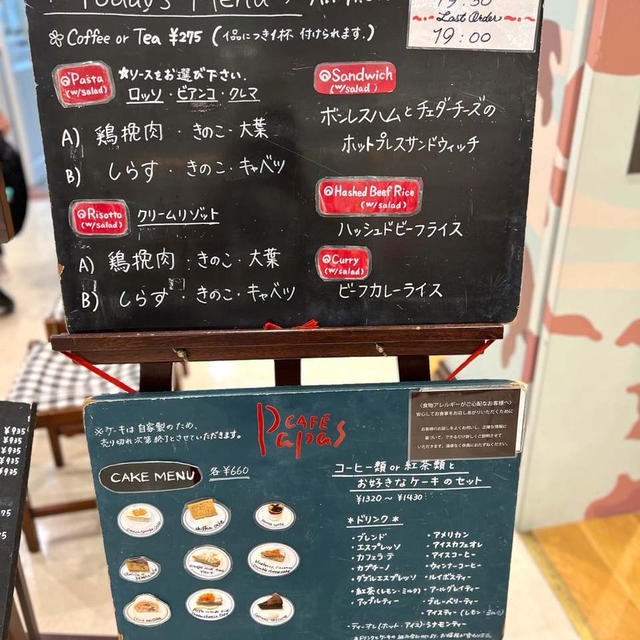 Today's Menu
19:30
Last Order
19:00
※ Coffee or Tea ¥275 (1品につき1杯 付けられます。)
@Pasta
(w/salad)
★ソースをお選び下さい.
ロッソ・ビアンコ・クレマ
A) 鶏挽肉・きのこ・大葉
B) しらす・きのこ・キャベツ
@Risotto
(w/salad)
クリームリゾット
A) 鶏挽肉・きのこ・大葉
B) しらす・きのこ・キャベツ
@Sandwich
(w/salad)
ボンレスハムとチェダーチーズの
ホットプレスサンドウィッチ
@Hashed Beef Rice
(w/salad)
ハッシュドビーフライス
@Curry
(w/salad)
ビーフカレーライス
※ケーキは自家製のため、
売り切れ次第終了とさせていただきます。
CAFÉ
Papas
〈食物アレルギーがご心配なお客様へ〉
CAKE MENU 各¥660
コーヒー類 or 紅茶類と
お好きなケーキのセット
¥1320～¥1430
＊ドリンク＊
・ブレンド
・エスプレッソ
・カフェラテ
・カプチーノ
・ダブルエスプレッソ
・紅茶(レモン・ミルク)
・アップルティー
・アメリカン
・アイスカフェオレ
・アイスコーヒー
・ウィンナーコーヒー
・ルイボスティー
・アールグレイティー
・ブルーベリーティー
・アイスティー(レモン・ミルク)
・シナモンティー
¥935
¥935
¥935
¥935